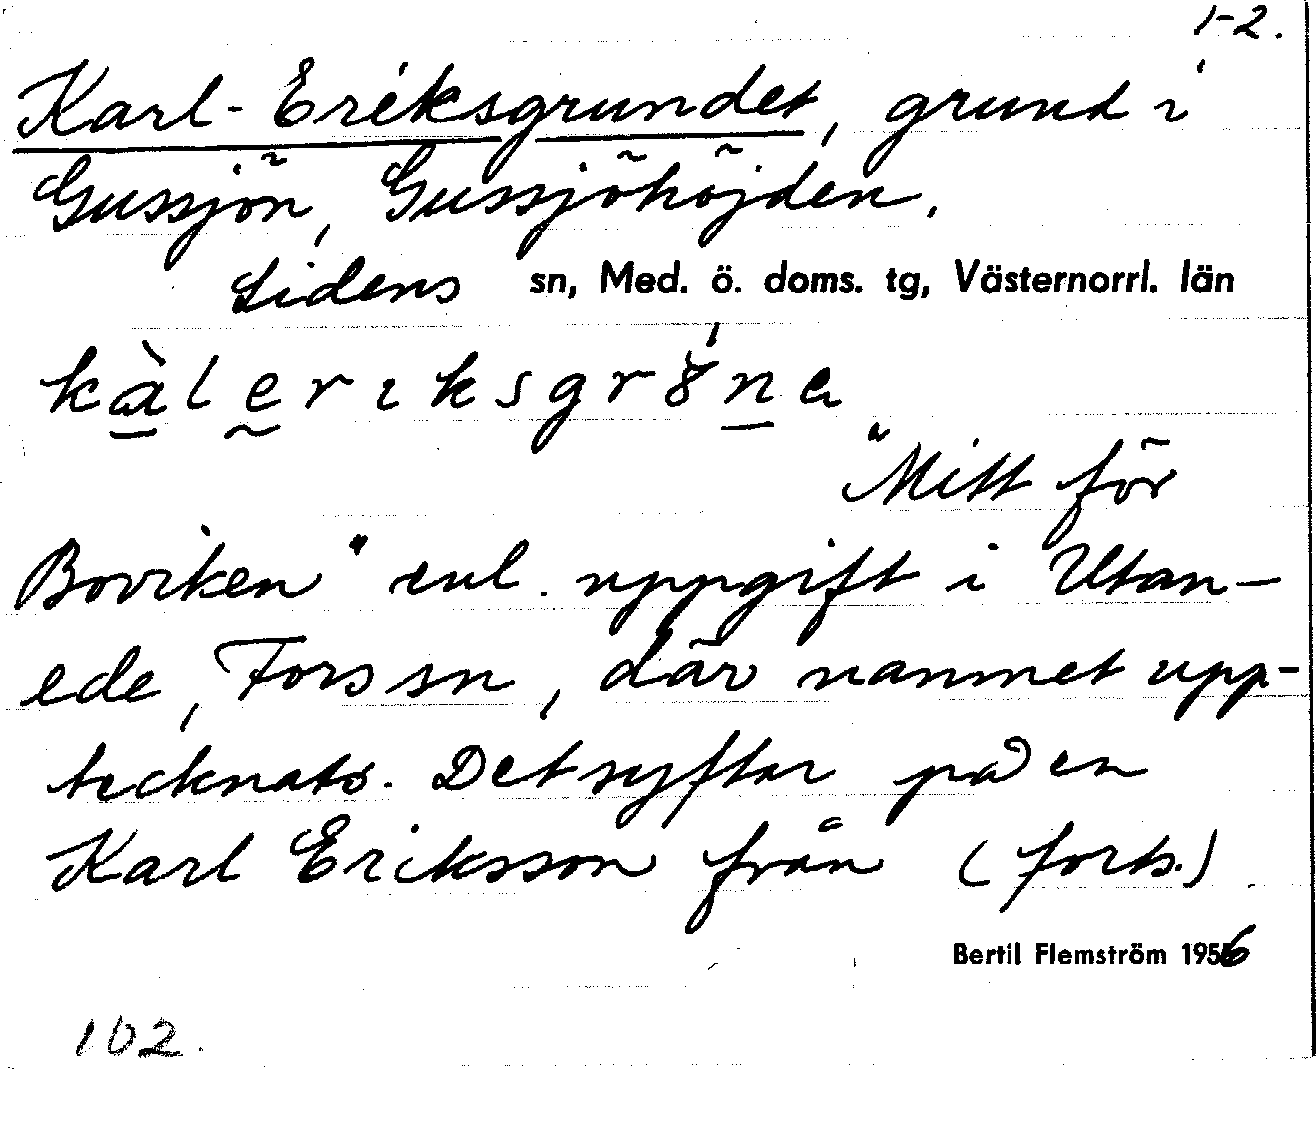 1-2.
Karl-Eriksgrundet, grund i
Gussjön, Gussjöhöjden.
Lidens sn, Med. ö. doms. tg, Västernorrl. län
kàleriksgr8́na
"Mitt för
Boviken" enl. uppgift i Utan-
ede, Fors sn, där namnet upp-
tecknats. Det syftar på en
Karl Eriksson från (forts.)
Bertil Flemström 1956
102.